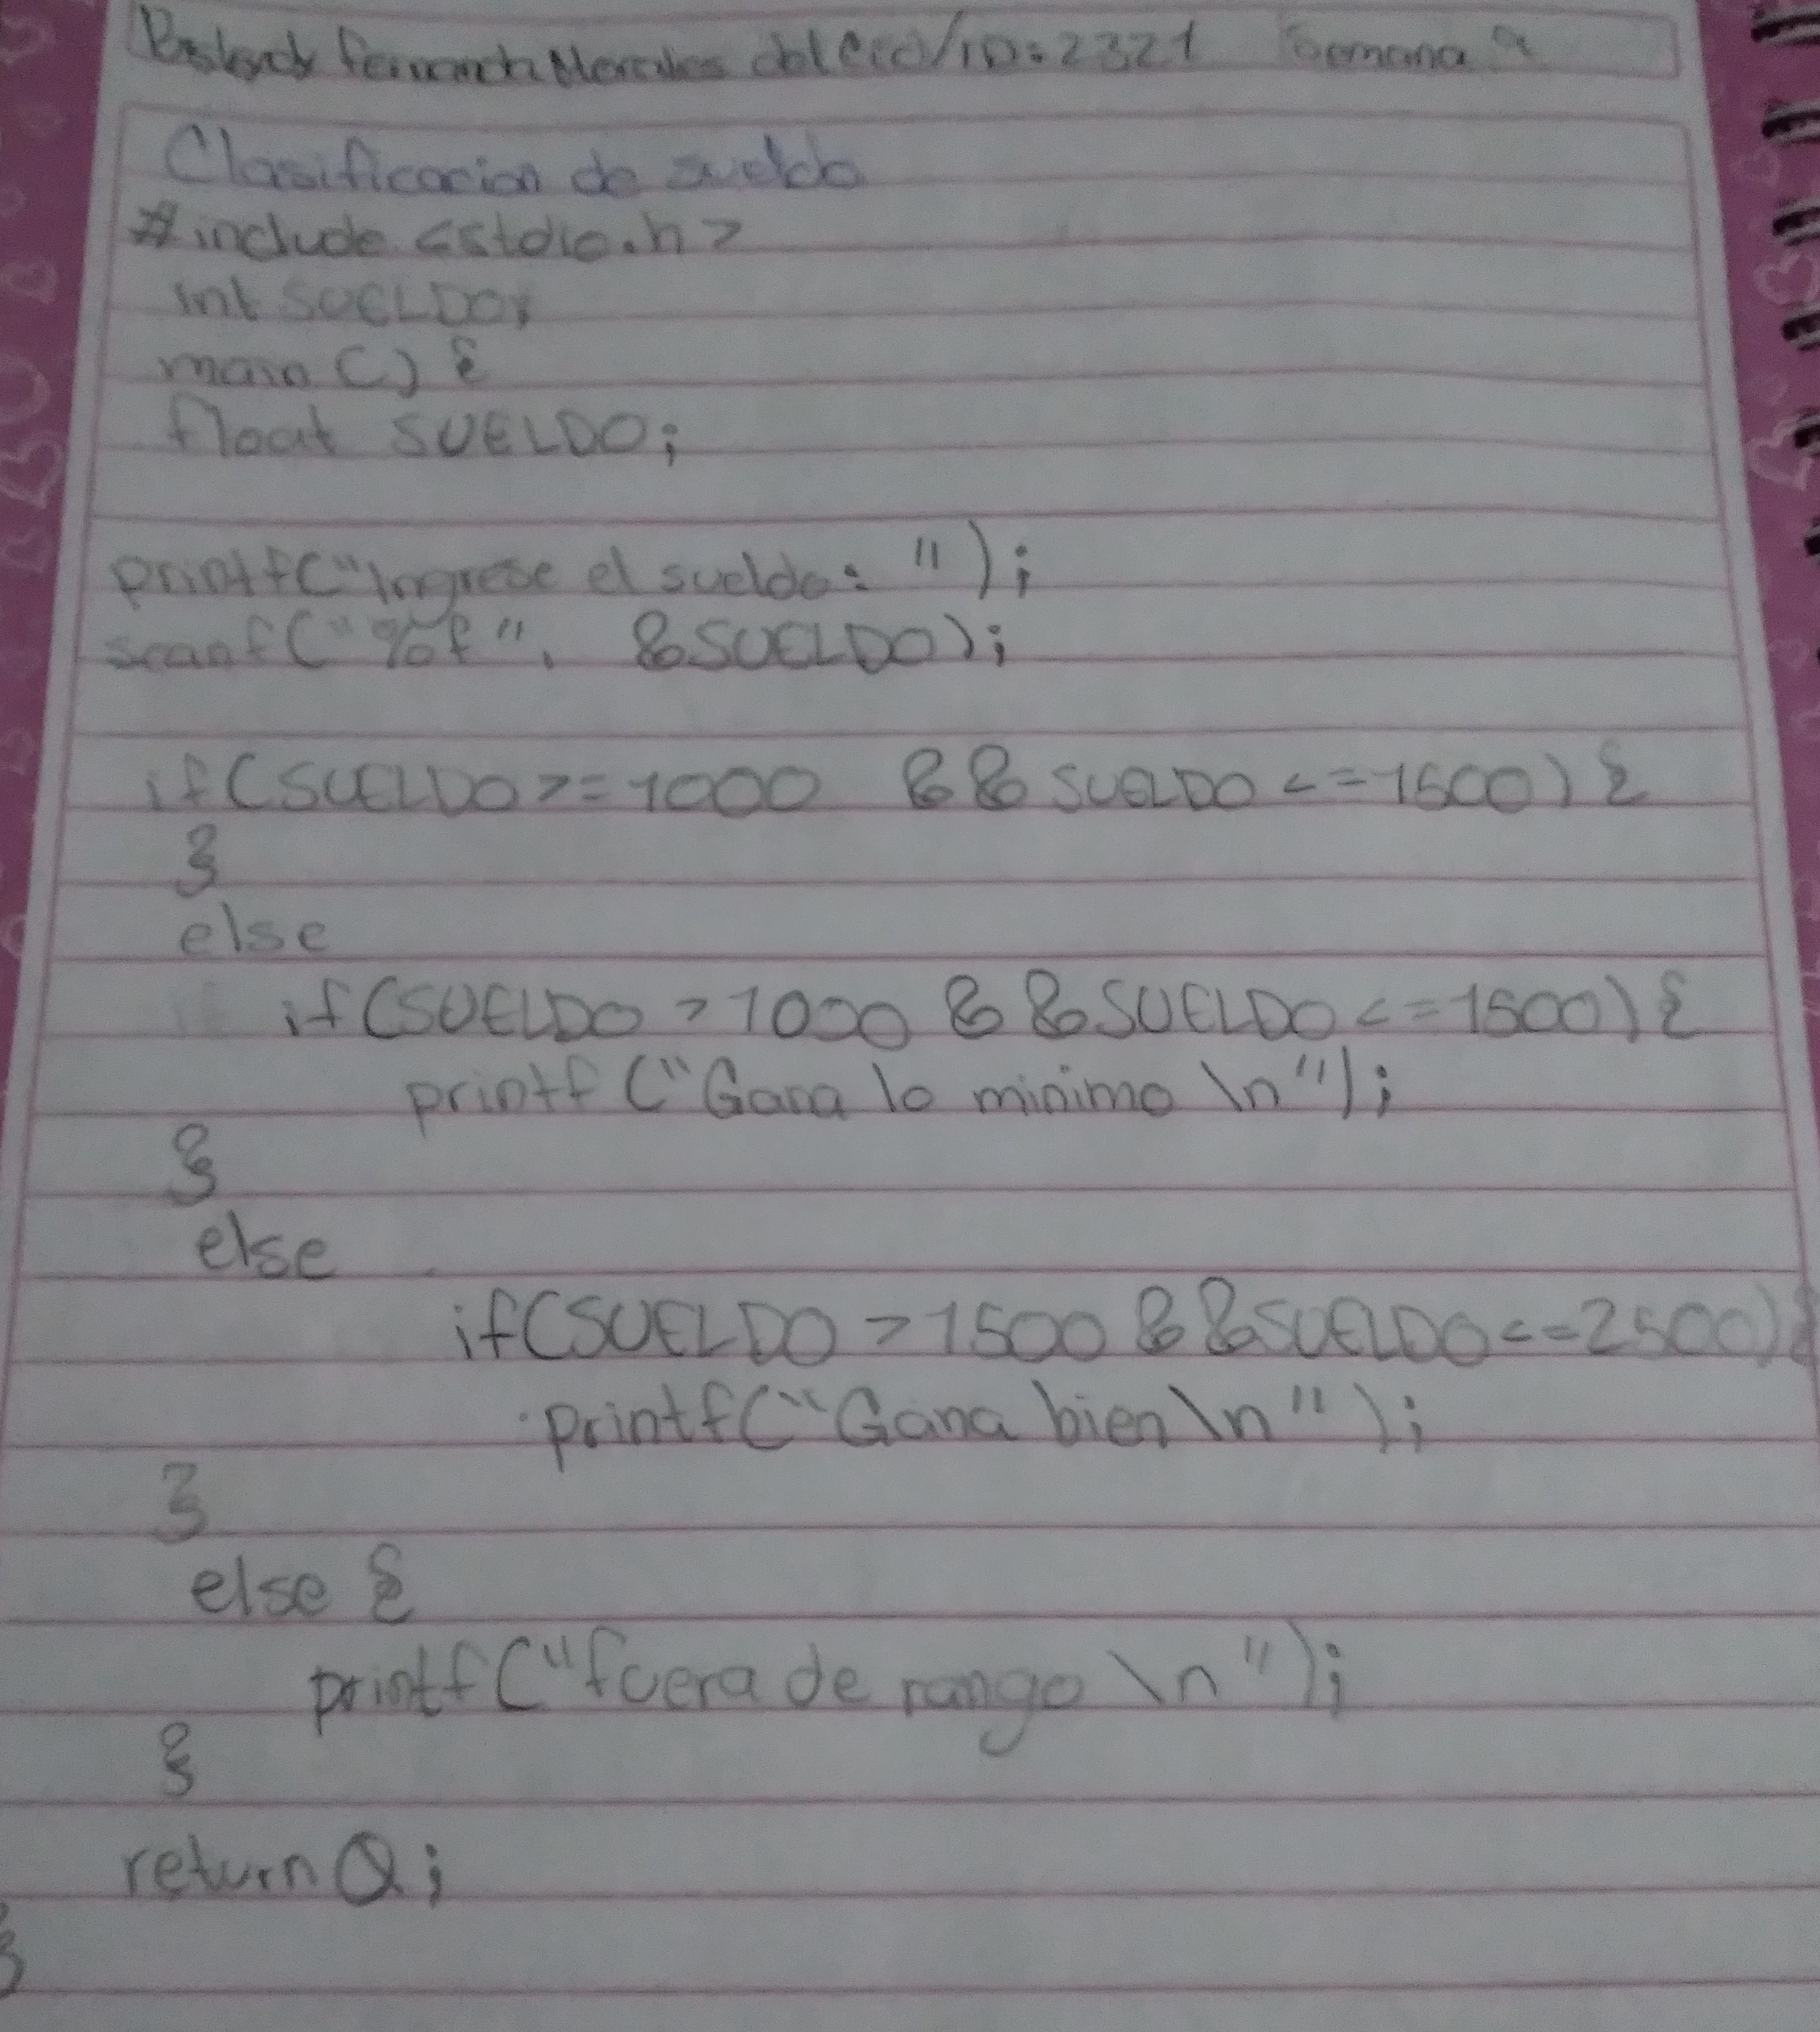 Fernanda Morales del Cid/ID: 2321 Semana 9
Clasificacion de sueldo
#include <stdio.h>
int SUELDO;
main () {
float SUELDO;
printf("Ingrese el sueldo: ");
scanf("%f", &SUELDO);
if(SUELDO >= 1000 && SUELDO <= 1500) {
}
else
if(SUELDO > 1000 && SUELDO <= 1500) {
printf ("Gana lo minimo \n");
}
else
if(SUELDO > 1500 && SUELDO <= 2500) {
printf("Gana bien \n");
}
else {
printf("fuera de rango \n");
}
return 0;
}